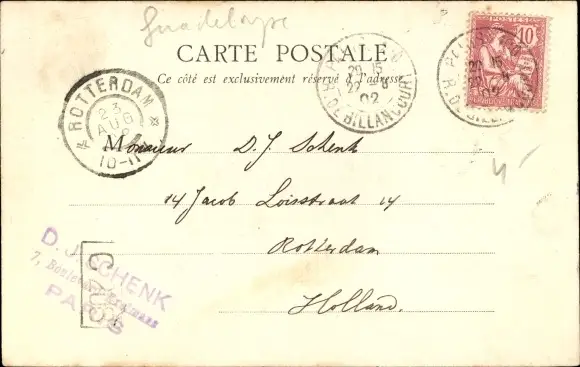 Guadeloupe
CARTE POSTALE
Ce côté est exclusivement réservé à l'adresse
POSTES
10
R. DE BILLANCOURT
22 02
ROTTERDAM
23
AUG
10-11
Monsieur D. J. Schenk
14 Jacob Loisstraat 14
Rotterdam
Holland.
D. J. SCHENK
7, Boulevard
PARIS